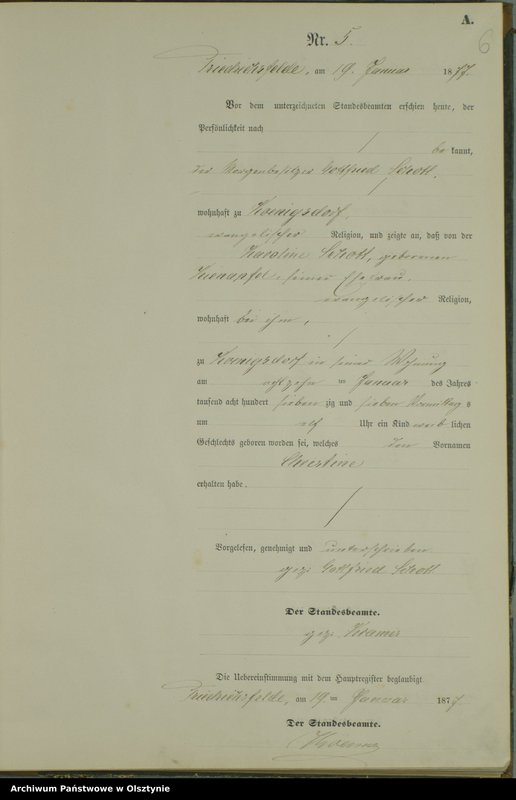 A.
6
Nr. 5
Friedrichsfelde, am 19. Januar 1877.
Vor dem unterzeichneten Standesbeamten erschien heute, der
Persönlichkeit nach
be kannt,
der Gottfried Schott,
wohnhaft zu Koenigsdorf,
evangelischer Religion, und zeigte an, daß von der
Karoline Schott, geborenen
seiner Ehefrau,
evangelischer Religion,
wohnhaft bei ihm,
zu Koenigsdorf in seiner Wohnung
am achtzehn ten Januar des Jahres
tausend acht hundert sieben zig und sieben Vormittag s
um elf Uhr ein Kind weib lichen
Geschlechts geboren worden sei, welches den Vornamen
Christine
erhalten habe.
Vorgelesen, genehmigt und unterschrieben
gez. Gottfried Schott
Der Standesbeamte.
gez. Kraemer
Die Uebereinstimmung mit dem Hauptregister beglaubigt
Friedrichsfelde, am 19 ten Januar 1877
Der Standesbeamte.
Kraemer
Archiwum Państwowe w Olsztynie